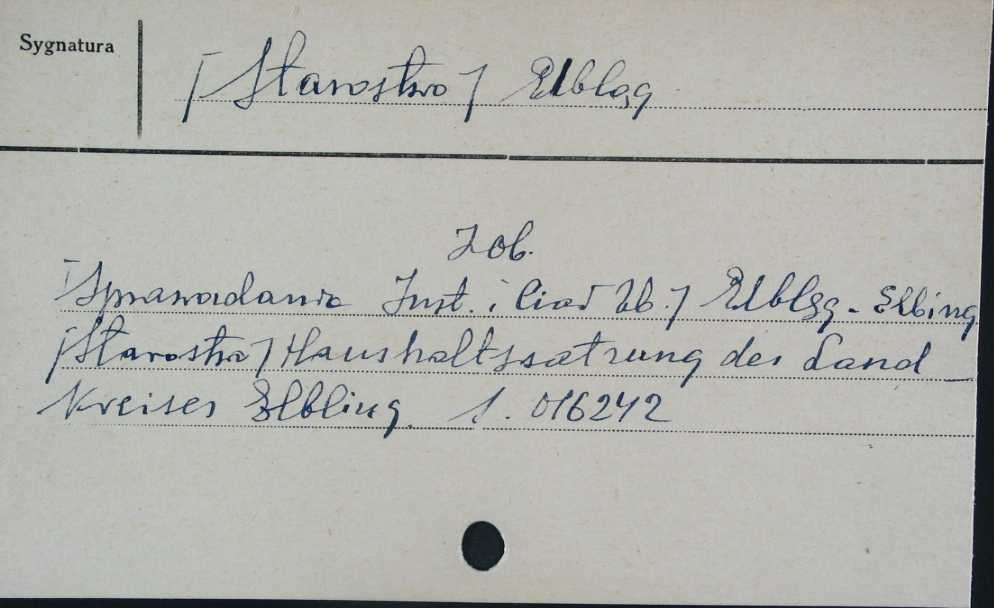 Sygnatura
[Starostwo] Elbląg
Zob.
[Sprawozdania Inst. i Ciał Zb.] Elbląg - Elbing
[Starostwo] Haushaltssatzung des Land
Kreises Elbling. S. 016242